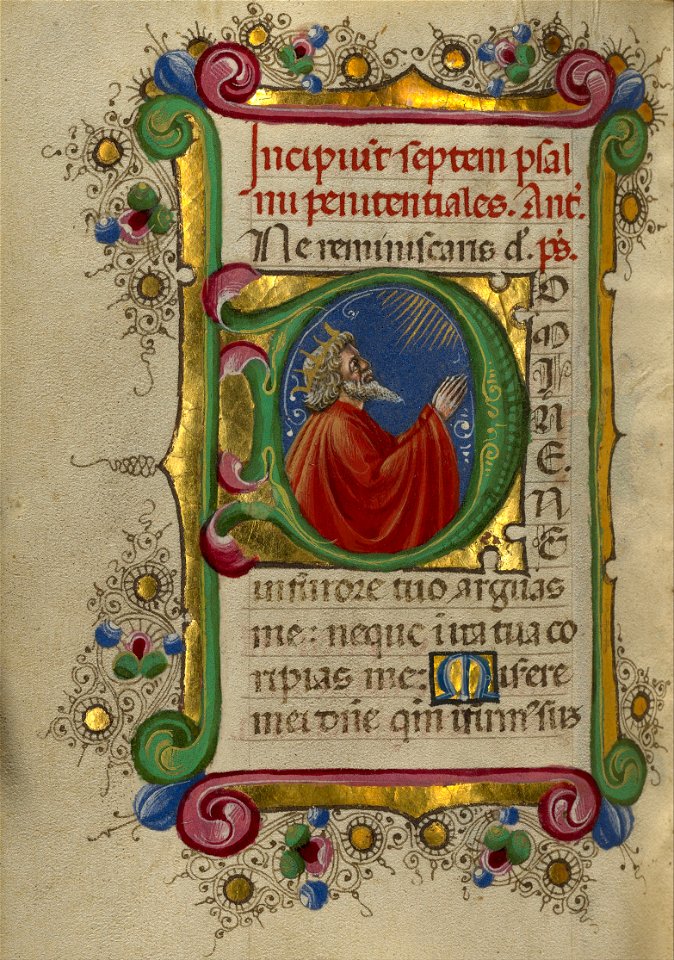 Incipiūt septem psal
mi penitentiales. Ant̓.
Ne reminiscaris d̓. ps̓.
D
O
M
I
N
E.
N
E
in furore tuo arguas
me: neque in ira tua co
ripias me: Misere
mei dn̄e qm̄ infirm̓ sus